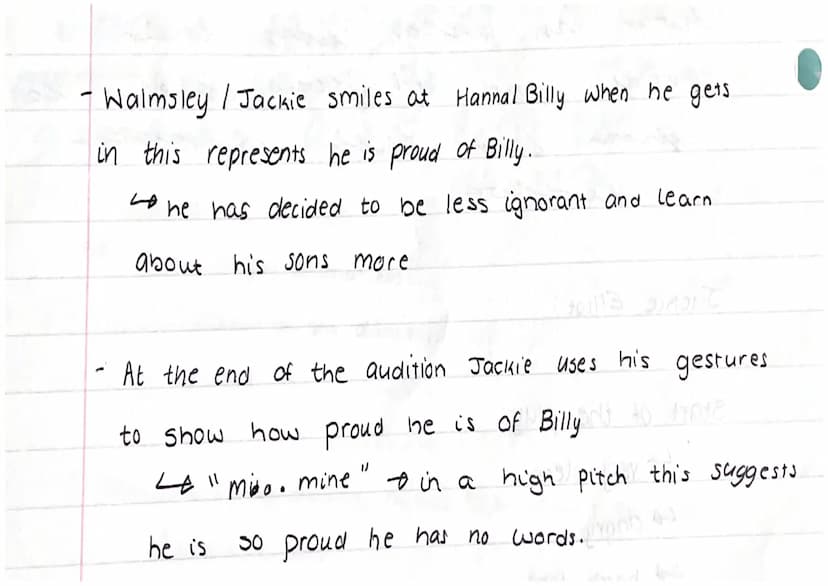 - Walmsley / Jackie smiles at Hanna/ Billy when he gets
in this represents he is proud of Billy.
↳ he has decided to be less ignorant and learn
about his sons more
- At the end of the audition Jackie uses his gestures
to show how proud he is of Billy
↳ " . mine" → in a high pitch this suggests
he is so proud he has no words.
Jackie Elliot
Start of the